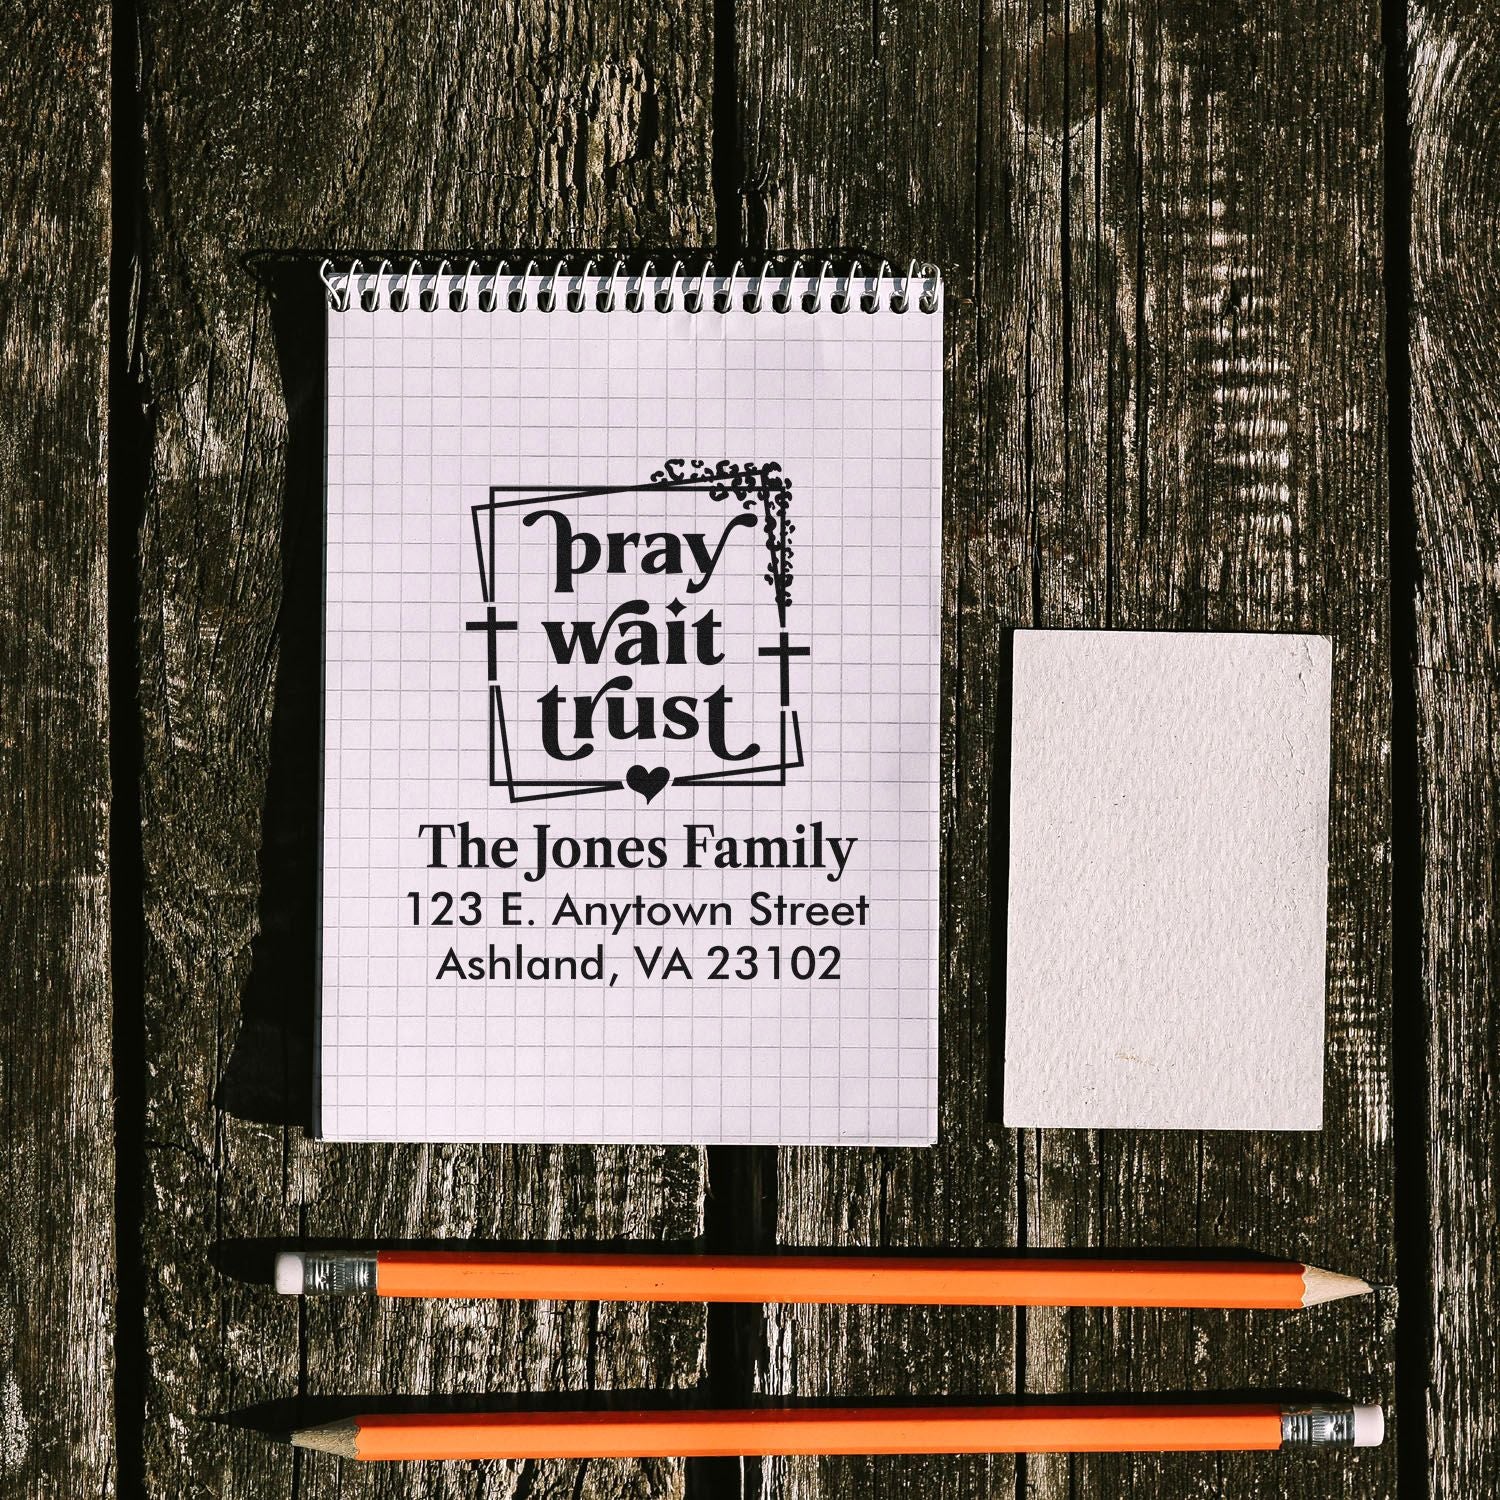 pray
wait
trust
The Jones Family
123 E. Anytown Street
Ashland, VA 23102